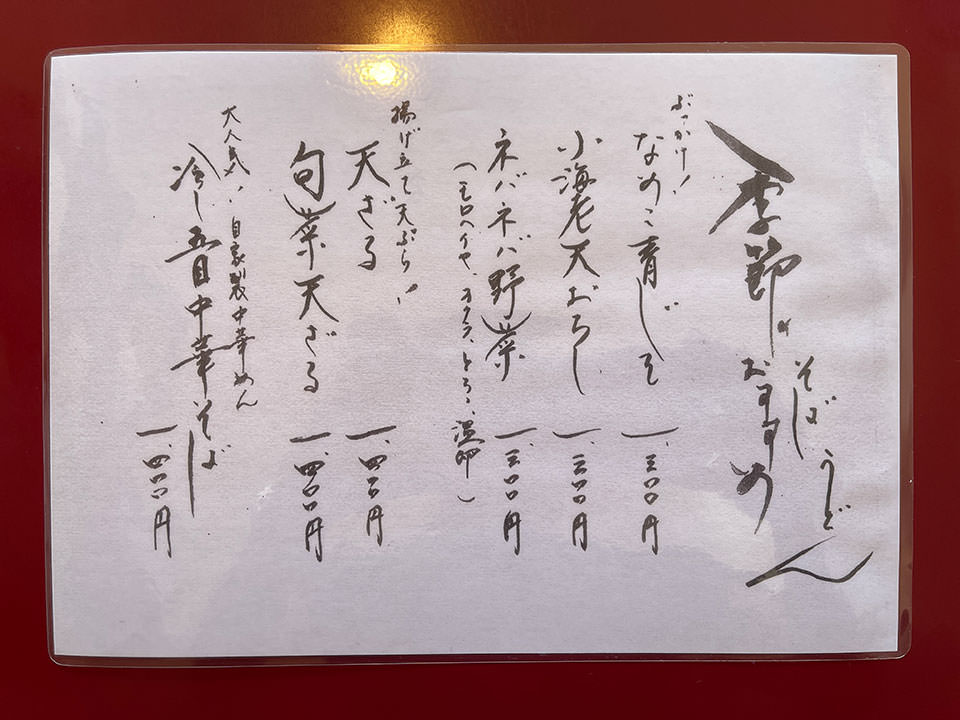 季節のおすすめ
そば うどん
ぶっかけ!
なめこ青じそ 一、三〇〇円
小海老天おろし 一、三〇〇円
ネバネバ野菜 一、三〇〇円
(モロヘイヤ、オクラ、とろろ、温卵)
揚げ立て天ぷら!
天ざる 一、四〇〇円
旬菜天ざる 一、四〇〇円
大人気! 自家製中華めん
冷し五目中華そば 一、四〇〇円